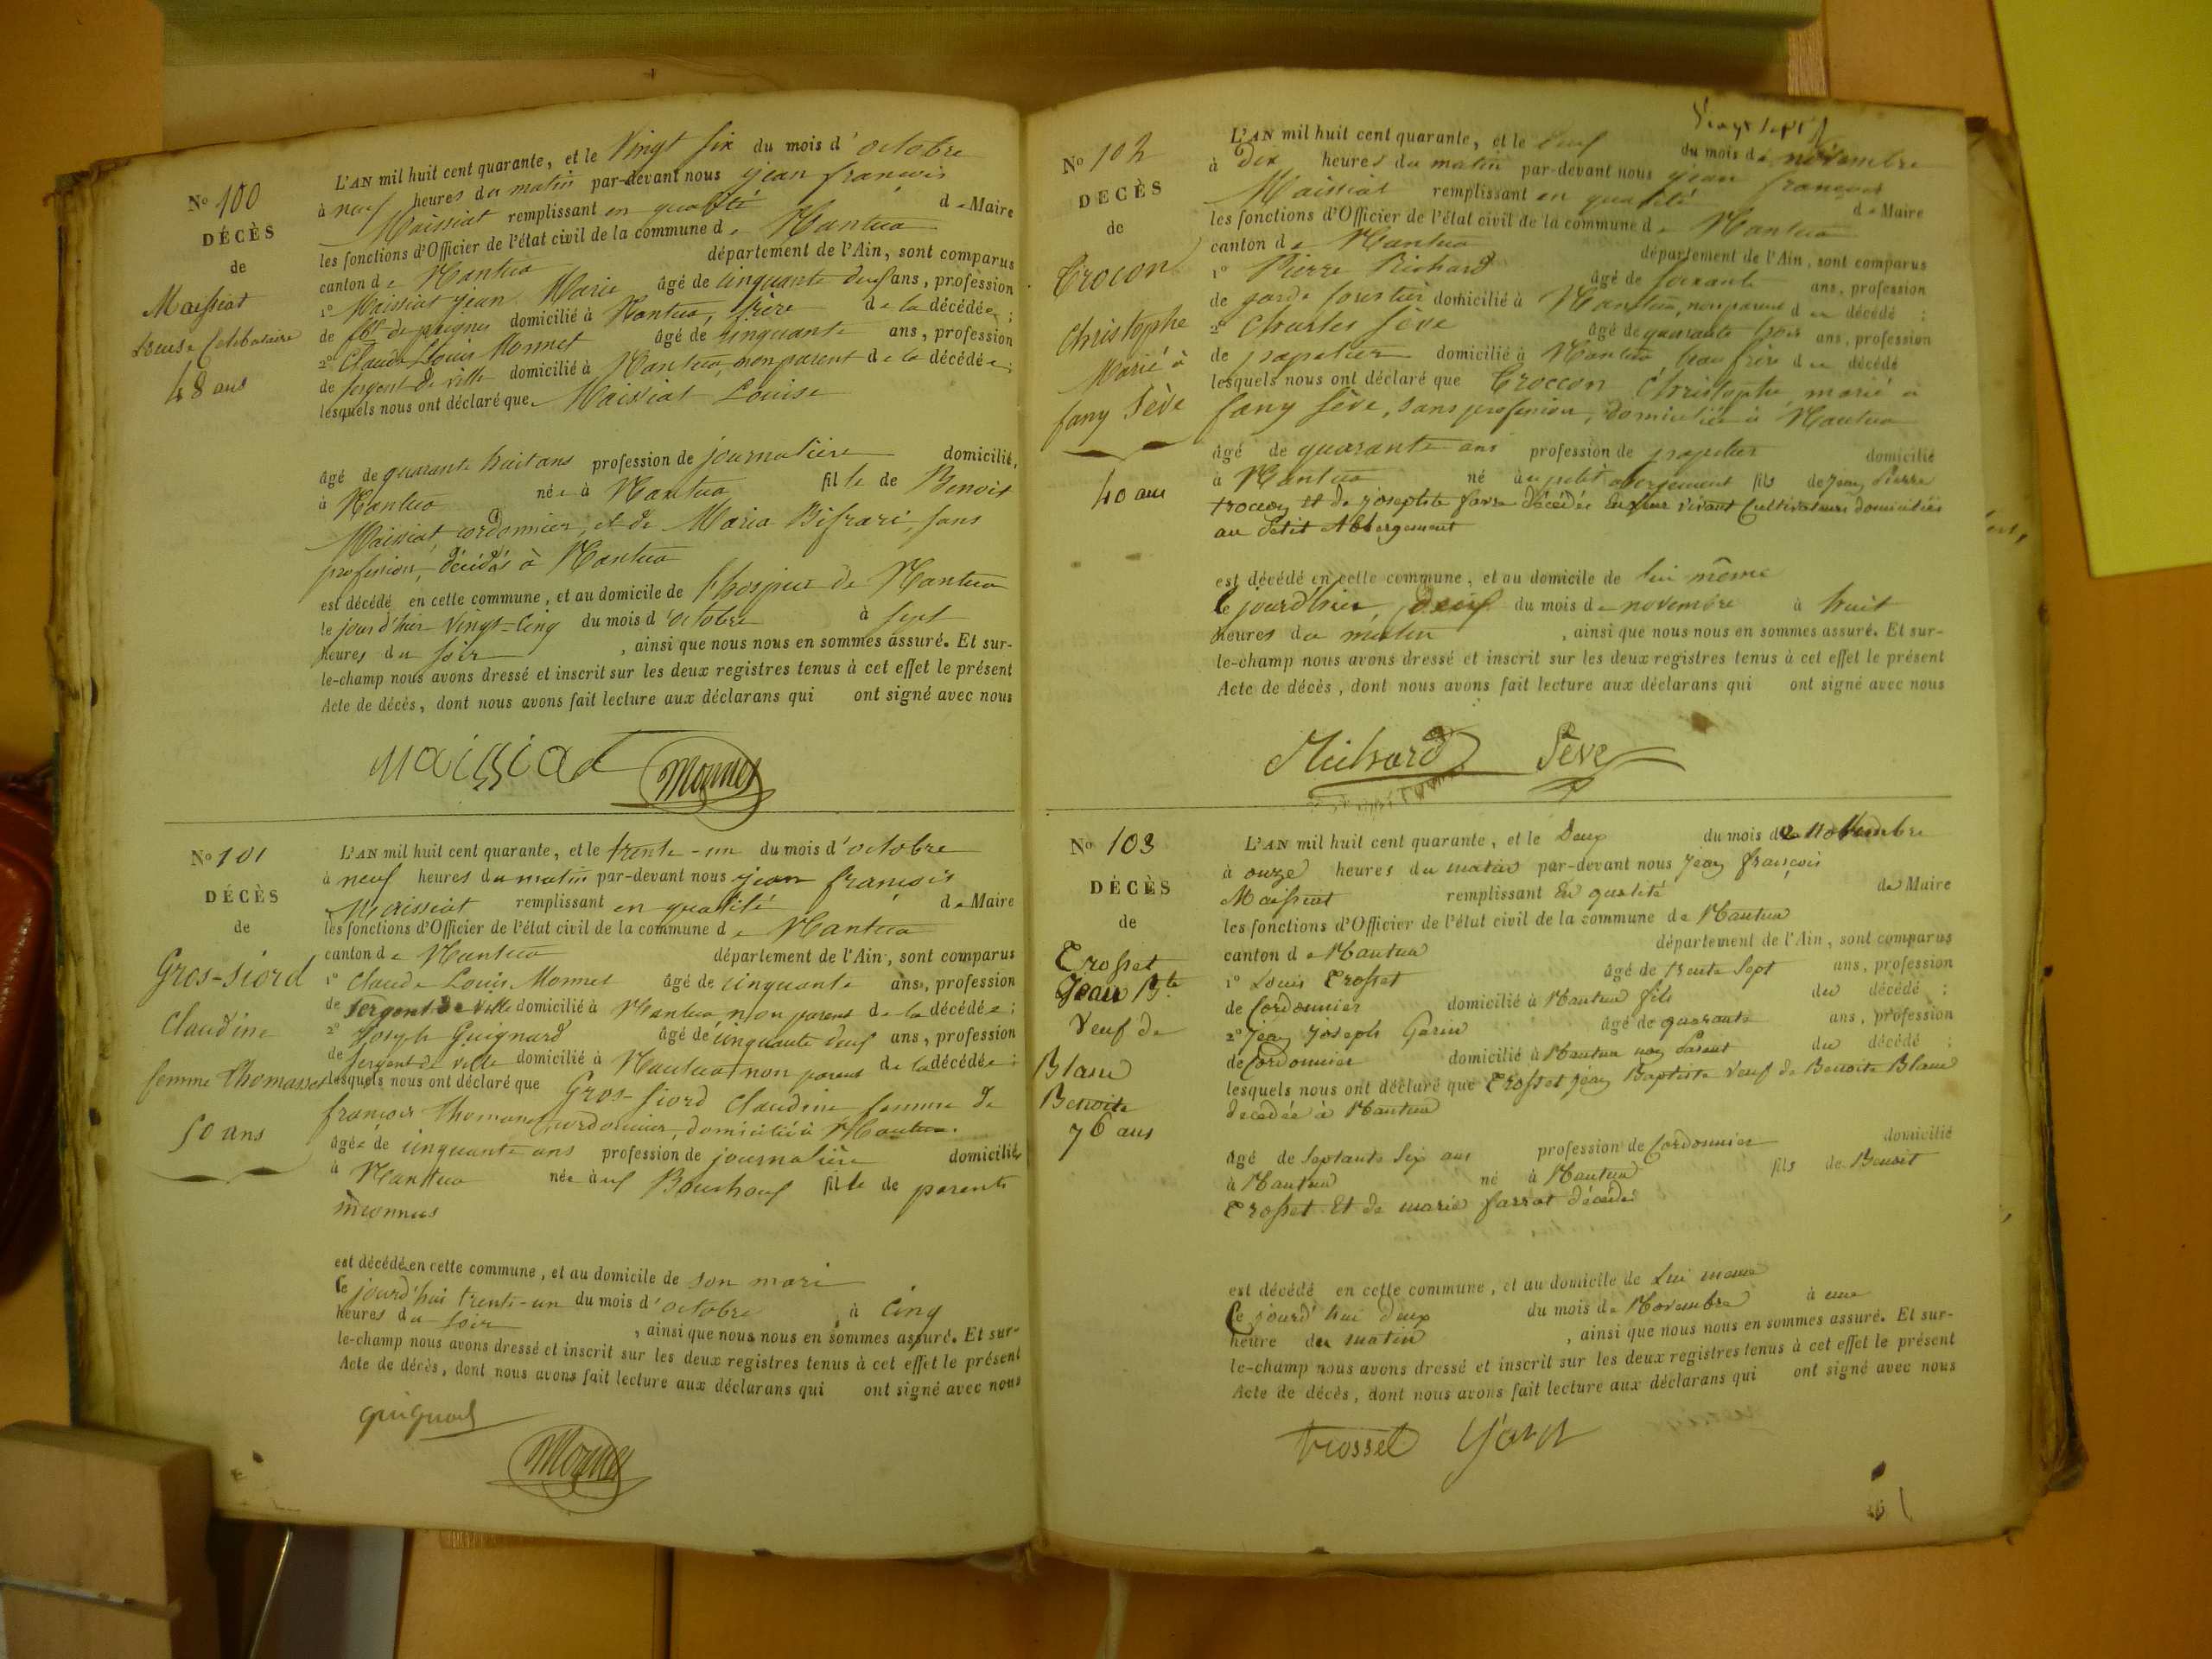 No 100
DÉCÈS
de
Maissiat
Louise Celibataire
48 ans
L'AN mil huit cent quarante, et le Vingt six du mois d'octobre
à neuf heures du matin par-devant nous jean françois
Maissiat remplissant en qualité de Maire
les fonctions d'Officier de l'état civil de la commune de Nantua
canton de Nantua département de l'Ain, sont comparus
1° Maissiat jean Marie âgé de cinquante deux ans, profession
de fbt de peignes domicilié à Nantua, frère de la décédée;
2° Claude Louis Monnet âgé de cinquante ans, profession
de sergent de ville domicilié à Nantua, non parent de la décédée;
lesquels nous ont déclaré que Maissiat Louise
âgé de quarante huit ans profession de journalière domicilié,
à Nantua née à Nantua fille de Benoit
Maissiat cordonnier, et de Maria sans
profession, décédés à Nantua
est décédé en cette commune, et au domicile de l'hospice de Nantua
le jour d'hier Vingt-Cinq du mois d'octobre à sept
heures du soir, ainsi que nous nous en sommes assuré. Et sur-
le-champ nous avons dressé et inscrit sur les deux registres tenus à cet effet le présent
Acte de décès, dont nous avons fait lecture aux déclarans qui ont signé avec nous
Maissiat Monnet
No 101
DÉCÈS
de
Gros-Siord
Claudine
femme Thomasset
50 ans
L'AN mil huit cent quarante, et le trente-un du mois d'octobre
à neuf heures du matin par-devant nous jean françois
Maissiat remplissant en qualité de Maire
les fonctions d'Officier de l'état civil de la commune de Nantua
canton de Nantua département de l'Ain, sont comparus
1° Claude Louis Monnet âgé de cinquante ans, profession
de Sergent de Ville domicilié à Nantua non parent de la décédée;
2° Joseph Guignard âgé de cinquante deux ans, profession
de Sergent de ville domicilié à Nantua non parent de la décédée;
lesquels nous ont déclaré que Gros-Siord Claudine femme de
françois Thomasset cordonnier, domicilié à Nantua.
âgée de cinquante ans profession de journalière domicilié
à Nantua née aux fille de parents
inconnus
est décédé en cette commune, et au domicile de son mari
le jourd'hui trente-un du mois d'octobre, à Cinq
heures du soir, ainsi que nous nous en sommes assuré. Et sur-
le-champ nous avons dressé et inscrit sur les deux registres tenus à cet effet le présent
Acte de décès, dont nous avons fait lecture aux déclarans qui ont signé avec nous
Guignard
Monnet
No 102
DÉCÈS
de
Trocon
Christophe
Marié à
fany Sève
40 ans
L'AN mil huit cent quarante, et le deux du mois de novembre
à Dix heures du matin par-devant nous jean françois
Maissiat remplissant en qualité de Maire
les fonctions d'Officier de l'état civil de la commune de Nantua
canton de Nantua département de l'Ain, sont comparus
1° Pierre Richard âgé de soixante ans, profession
de garde forestier domicilié à Nantua, non parent du décédé;
2° Charles Sève âgé de quarante trois ans, profession
de papetier domicilié à Nantua beau frère du décédé
lesquels nous ont déclaré que Troccon Christophe, marié à
fany Sève, sans profession, domiciliée à Nantua
âgé de quarante ans profession de papetier domicilié
à Nantua né au petit abergement fils de jean Pierre
trocon et de josephte décédés en leur vivant Cultivateurs domiciliés
au Petit Abbergement
est décédé en cette commune, et au domicile de lui même
le jourd'hier, du mois de novembre à huit
heures du matin, ainsi que nous nous en sommes assuré. Et sur-
le-champ nous avons dressé et inscrit sur les deux registres tenus à cet effet le présent
Acte de décès, dont nous avons fait lecture aux déclarans qui ont signé avec nous
Richard Sève
No 103
DÉCÈS
de
Crosset
Jean Bte
Veuf de
Blanc
Benoite
76 ans
L'AN mil huit cent quarante, et le Deux du mois de Novembre
à onze heures du matin par-devant nous jean françois
Maissiat remplissant en qualité de Maire
les fonctions d'Officier de l'état civil de la commune de Nantua
canton de Nantua département de l'Ain, sont comparus
1° Louis Crosset âgé de trente sept ans, profession
de Cordonnier domicilié à Nantua fils du décédé;
2° jean joseph âgé de quarante ans, profession
de Cordonnier domicilié à Nantua non Parent du décédé;
lesquels nous ont déclaré que Crosset jean Baptiste Veuf de Benoite Blanc
decedée à Nantua
âgé de Septante Six ans profession de Cordonnier domicilié
à Nantua né à Nantua fils de Benoit
Crosset Et de marie décédés
est décédé en cette commune, et au domicile de Lui meme
le jourd'hui deux du mois de Novembre à une
heure du matin, ainsi que nous nous en sommes assuré. Et sur-
le-champ nous avons dressé et inscrit sur les deux registres tenus à cet effet le présent
Acte de décès, dont nous avons fait lecture aux déclarans qui ont signé avec nous